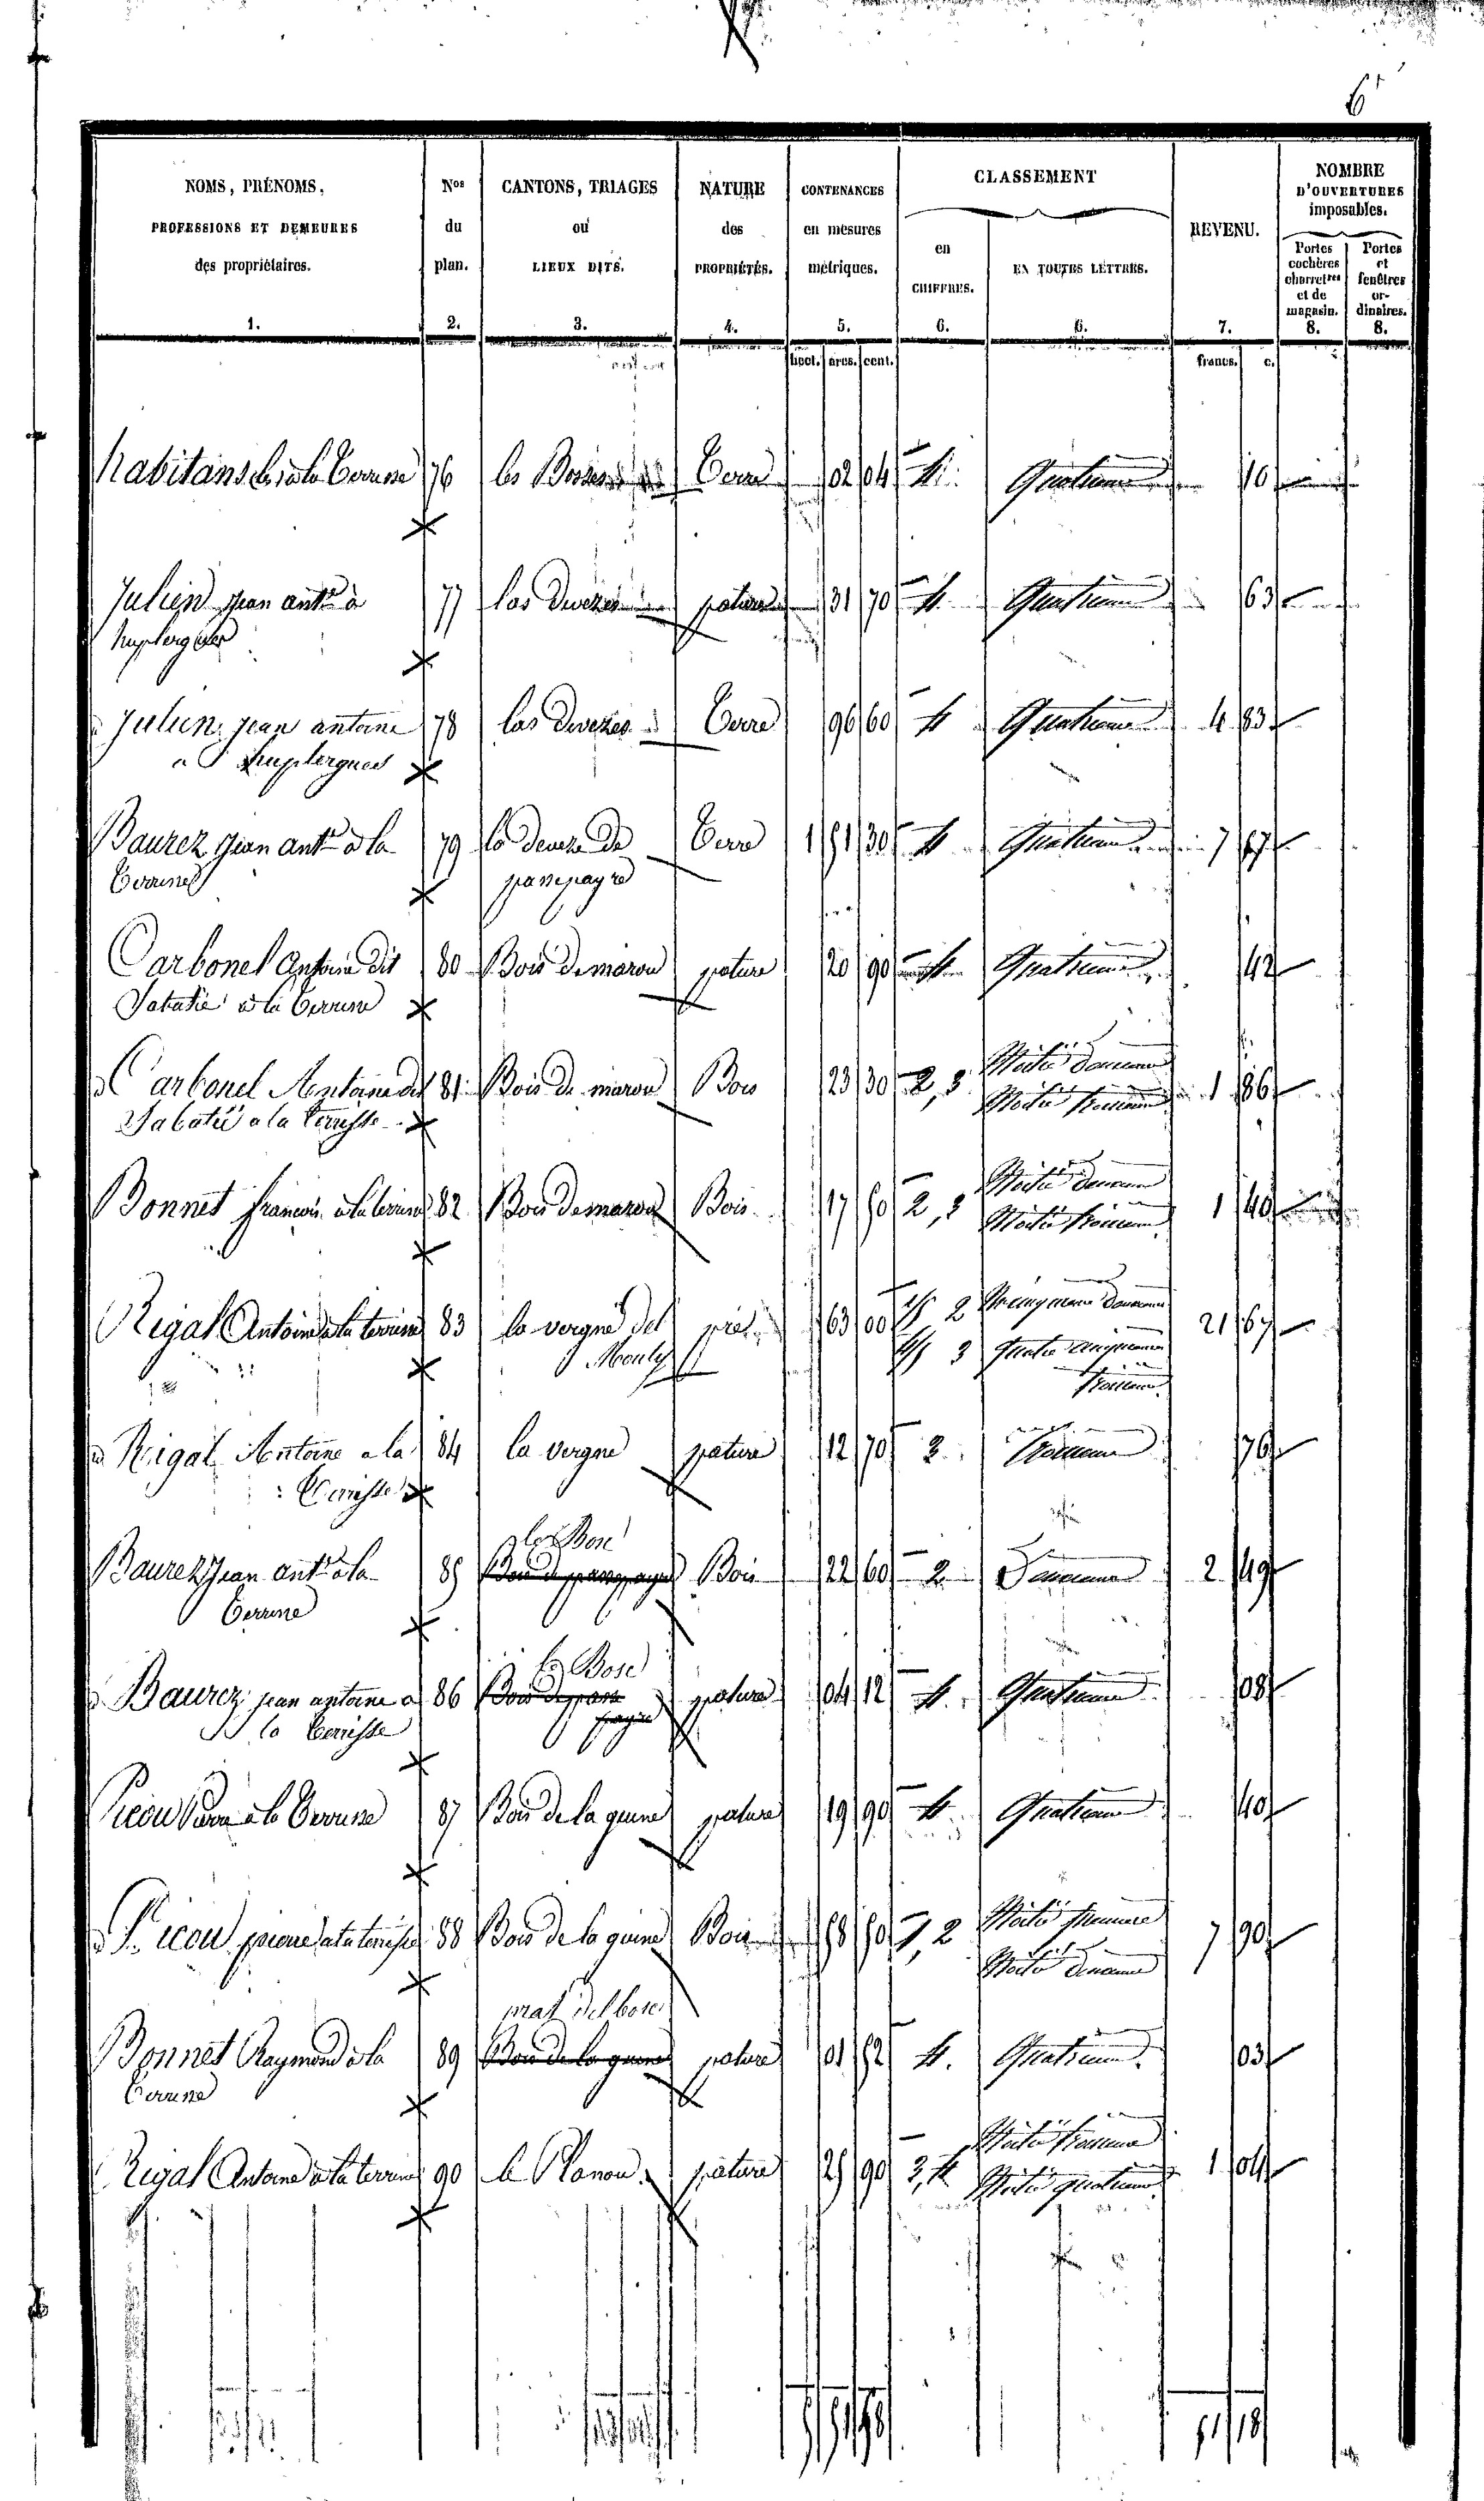 6
NOMS, PRÉNOMS,
PROFESSIONS ET DEMEURES
des propriétaires.
1.
Nos
du
plan.
2.
CANTONS, TRIAGES
ou
LIEUX DITS.
3.
NATURE
des
PROPRIÉTÉS.
4.
CONTENANCES
en mesures
métriques.
5.
CLASSEMENT
en
CHIFFRES.
6.
EN TOUTES LETTRES.
6.
REVENU.
7.
NOMBRE
D'OUVERTURES
imposables.
Portes
cochères
charretres
et de
magasin.
8.
Portes
et
fenêtres
or-
dinaires.
8.
hect. ares. cent. francs. c.
habitans de la Terrisse 76 les Terre 02 04 4 Quatrieme 10
Julien Jean ante à 77 las Devezes pature 31 70 4 Quatrieme 63
Huplergues
Julien jean antoine 78 las Devezes Terre 96 60 4 Quatrieme 4 83
a Huplergues
Baurez Jean ante à la 79 la deveze de Terre 1 51 30 4 Quatrieme 7 57
Terrisse passepayre
Carbonel Antoine dit 80 Bois de marou pature 20 90 4 Quatrieme 42
Sabatié à la Terrisse
Carbonel Antoine dit 81 Bois de marou Bois 23 30 2, 3 Moitié Deuxieme
Moitié troisieme 1 86
Sabatié a la Terrisse
Bonnet francois à la terrisse 82 Bois de marou Bois 17 50 2, 3 Moitié Deuxieme
Moitié troisieme 1 40
Rigal Antoine à la terrisse 83 la vergne del pré 63 00 1/5 2 Un cinquieme Deuxieme 21 67
Mouly 4/5 3 Quatre cinquiemes
troisieme
Rigal Antoine a la 84 la vergne pature 12 70 3 Troisieme 76
Terrisse
lo Bosc
Baurez Jean ante à la 85 Bois de passepayre Bois 22 60 2 Deuxieme 2 49
Terrisse
lo Bosc
Baurez jean antoine a 86 Bois de passe pature 04 12 4 Quatrieme 08
la Terrisse payre
Picou Pierre à la Terrisse 87 Bois de la pature 19 90 4 Quatrieme 40
Picou pierre a la terrisse 88 Bois de la Bois 58 50 1, 2 Moitié premiere
Moitié deuxieme 7 90
prat del bosc
Bonnet Raymond à la 89 Bois de la pature 01 52 4 Quatrieme 03
Terrisse
Rigal Antoine à la terrisse 90 le pature 25 90 3, 4 Moitié troisieme
Moitié quatrieme 1 04
51 18